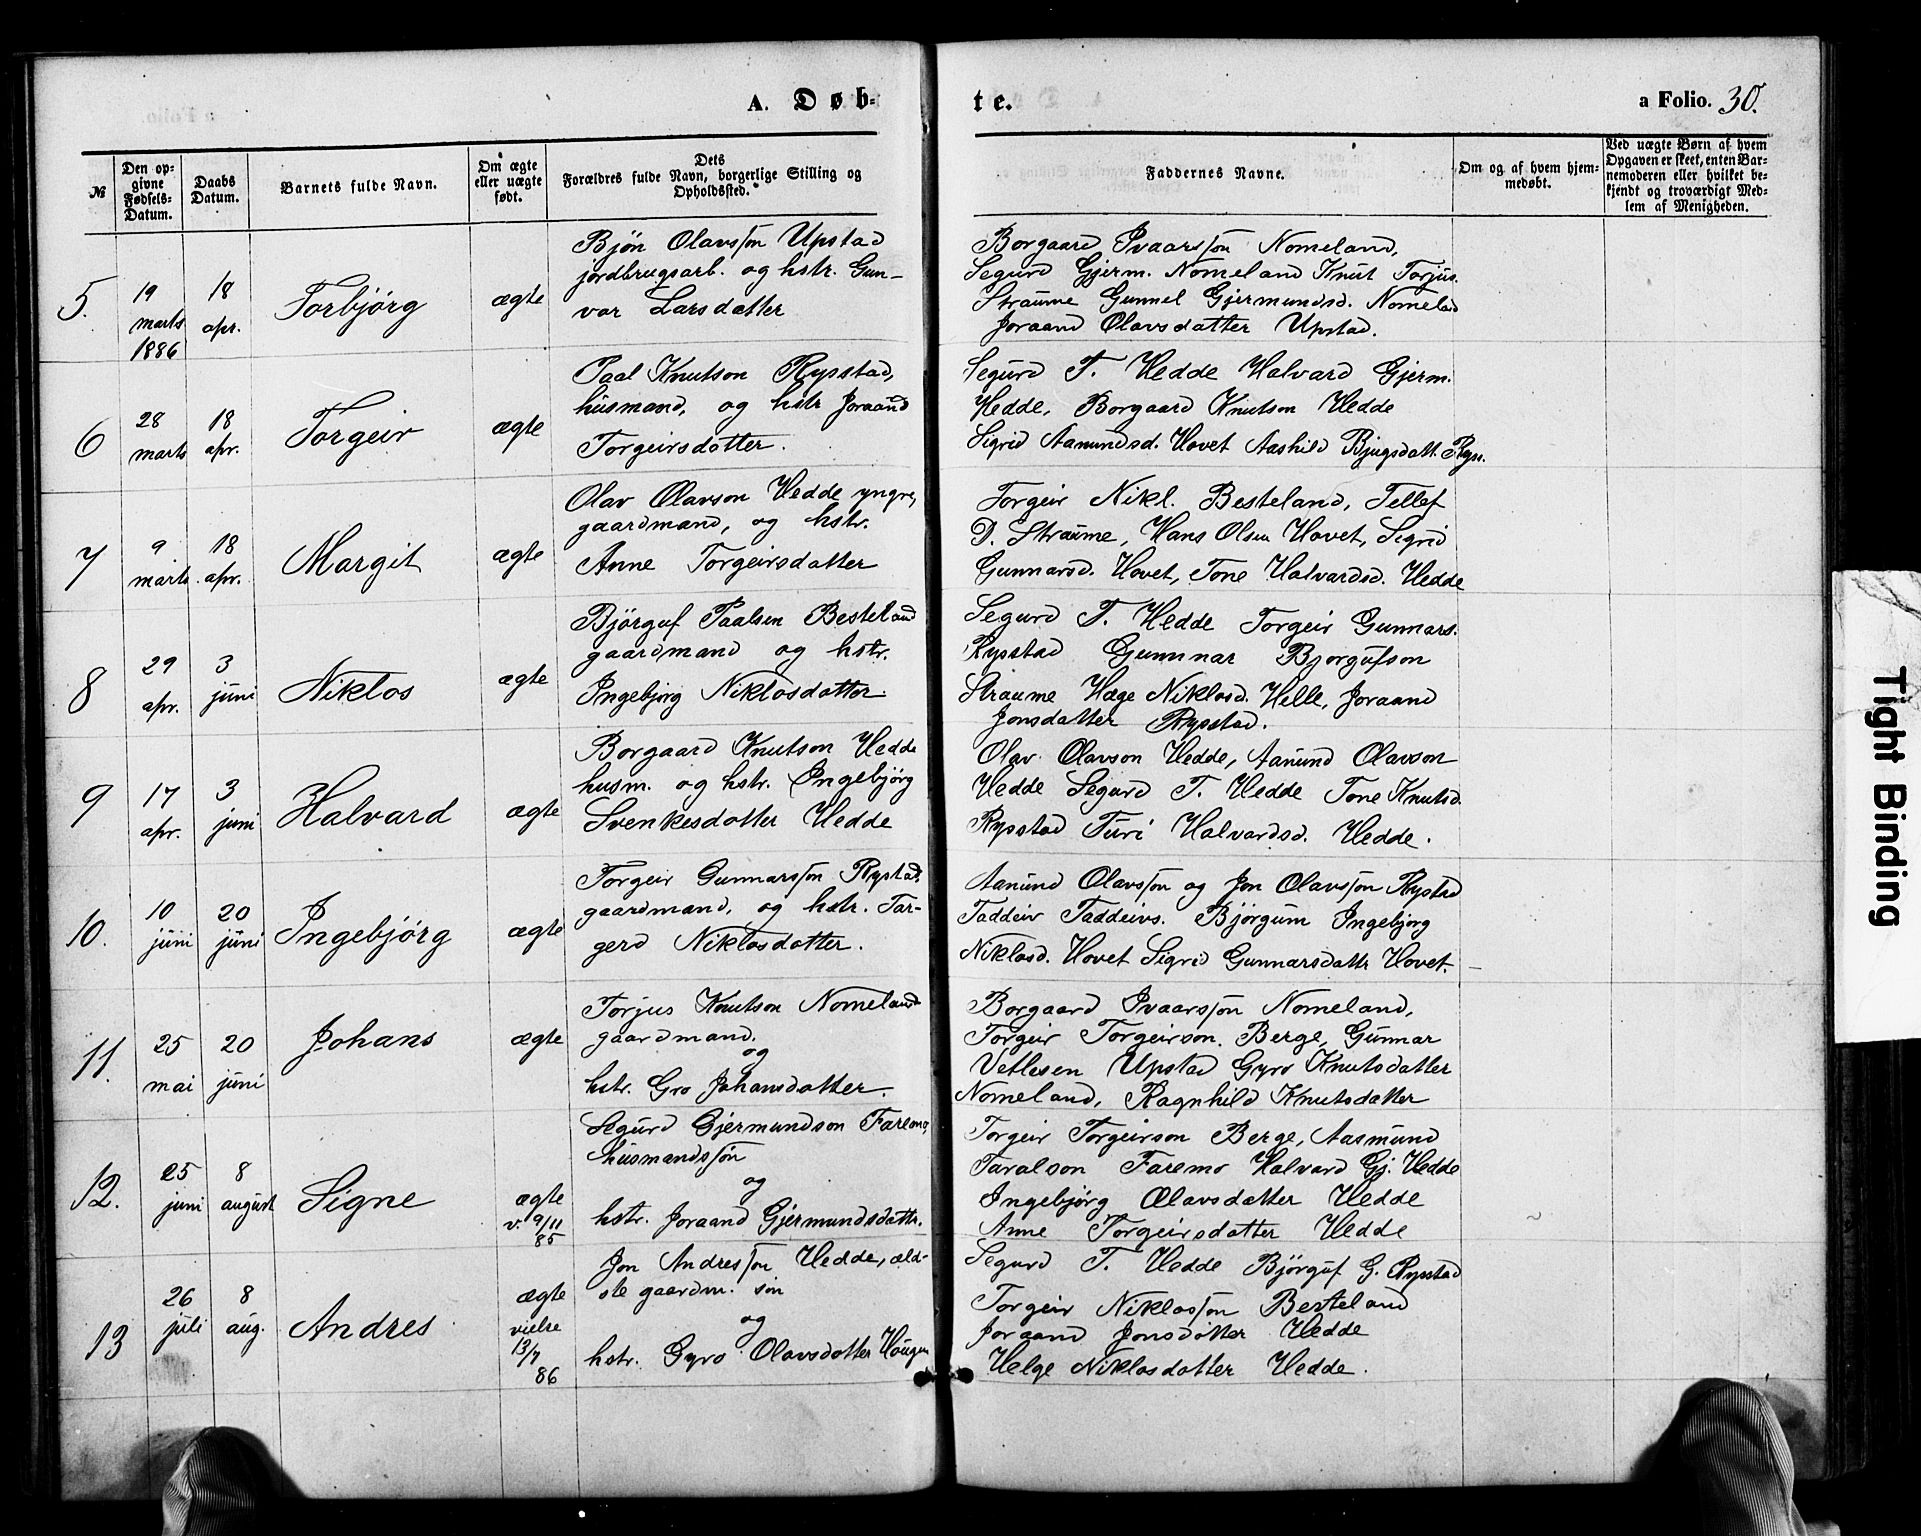 A. Døb-
te.
a Folio. 30.
№
Den op-
givne
Fødsels-
Datum.
Daabs
Datum.
Barnets fulde Navn.
Om ægte
eller uægte
født.
Dets
Forældres fulde Navn, borgerlige Stilling og
Opholdssted.
Faddernes Navne.
Om og af hvem hjem-
medøbt.
Ved uægte Børn af hvem
Opgaven er skeet, enten Bar-
nemoderen eller hvilket be-
kjendt og troværdigt Med-
lem af Menigheden.
5.
19
marts
1886
18
apr.
Torbjørg
ægte
Bjøn Olavssøn Upstad
jordbrugsarb. og hstr. Gun-
vor Larsdatter
Borgaard Ivaarssøn Nomeland,
Segurd Gjerm. Nomeland Knut Torjus.
Straume Gunnel Gjermundsd. Nomelad
Joraand Olavsdatter Upstad.
6
28
marts
18
apr.
Torgeir
ægte
Paal Knutson Rysstad,
husmand, og hstr Joraand
Torgeirsdatter.
Segurd T. Hedde Halvard Gjerm.
Hedde, Borgaard Knutson Hedde
Sigrid Aanundsd. Hovet Aashild Bjugsdatt. Ryss.
7
9
marts
18
apr.
Margit
ægte
Olav Olavson Hedde yngre,
gaardmand, og hstr.
Anne Torgeirsdatter
Torgeir Nikl. Besteland, Tellef
D. Straume, Hans Olsen Hovet, Sigrid
Gunnarsd. Hovet, Tone Halvardsd. Hedde
8
29
apr.
3
juni
Niklos
ægte
Bjørguf Paalsen Besteland
gaardmand og hstr.
Ingebjørg Niklosdatter.
Segurd T. Hedde Torgeir Gunnars.
Rysstad Gunnar Bjorgufson
Straume Hæge Niklosd. Helle, Joraand
Jonsdatter Rysstad.
9
17
apr.
3
juni
Halvard
ægte
Borgaard Knutson Hedde
husm. og hstr. Ingebjörg
Svenkesdatter Hedde
Olav Olavson Hedde, Aanund Olavson
Hedde Segurd T. Hedde Tone Knutsd.
Rysstad Turi Halvardsd. Hedde.
10.
10
juni
20
juni
Ingebjörg
ægte
Torgeir Gunnarssøn Rystad.
gaardmand, og hstr. Tar-
gerd Niklosdatter.
Aanund Olavssøn og Jon Olavssøn Rystad
Taddeiv Taddeivs. Bjørgum Ingebjørg
Niklosd. Hovet Sigrid Gunnarsdattr Hovet.
11.
25
mai
20
juni
Johans
ægte
Torjus Knutson Nomeland
gaardmand.
og
hstr. Gro Johansdatter.
Borgaard Ivaarssøn Nomeland,
Torgeir Torgeirson. Berge, Gunnar
Vetlesen Upstad Gyro Knutsdatter
Nomeland, Ragnhild Knutsdatter
12.
25
juni
8
august
Signe
ægte
v. 9/11
85
Segurd Gjermundson Faremo,
husmandssøn
og
hstr. Joraand Gjermundsdattr.
Torgeir Torgeirson Berge, Aasmund
Taralson Faremo Halvard Gj. Hedde
Ingebjørg Olavsdatter Hedde
Anne Torgeirsdatter Hedde
13
26
juli
8
aug.
Andres
ægte
vielse
13/7
86
Jon Andressøn Hedde, æld-
ste gaardm. søn
og
hstr. Gyro Olavsdatter Haugen
Segurd T. Hedde Bjørguf G. Rysstad
Torgeir Niklossøn Besteland
Joraand Jonsdatter Hedde
Helge Niklosdatter Hedde.
Tight Binding